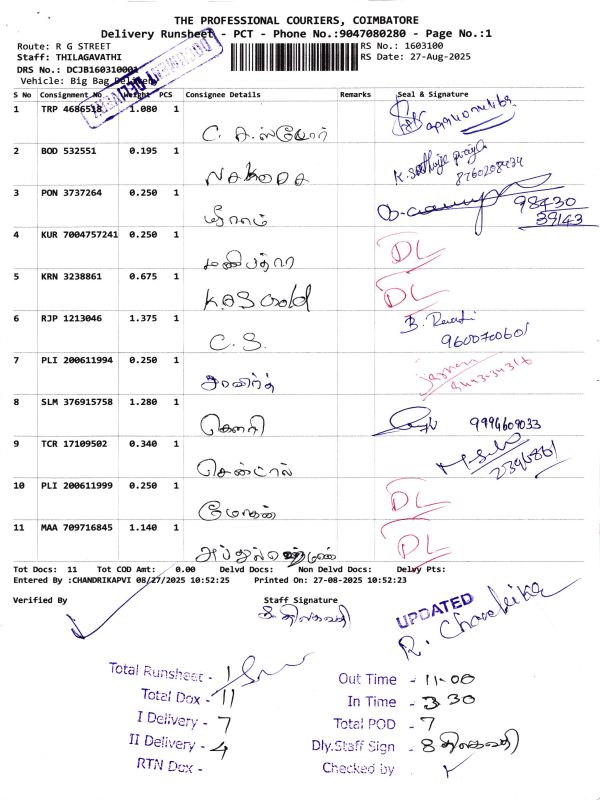 THE PROFESSIONAL COURIERS, COIMBATORE
Delivery Runsheet - PCT - Phone No.:9047080280 - Page No.:1
Route: R G STREET
RS No.: 1603100
Staff: THILAGAVATHI
RS Date: 27-Aug-2025
DRS No.: DCJB160310001
Vehicle: Big Bag Delivery
S No Consignment No Weight PCS Consignee Details Remarks Seal & Signature
1 TRP 4686518 1.080 1
2 BOD 532551 0.195 1 Nakoda 8760208434
3 PON 3737264 0.250 1 98430 39143
4 KUR 7004757241 0.250 1 DL
5 KRN 3238861 0.675 1 KAS Gold DL
6 RJP 1213046 1.375 1 C. S. B. Revati 9600700601
7 PLI 200611994 0.250 1
8 SLM 376915758 1.280 1 கௌரி 9994609033
9 TCR 17109502 0.340 1 சென்ட்ரல்
10 PLI 200611999 0.250 1 மோகன் DL
11 MAA 709716845 1.140 1 DL
Tot Docs: 11 Tot COD Amt: 0.00 Delvd Docs: Non Delvd Docs: Delvy Pts:
Entered By :CHANDRIKAPVI 08/27/2025 10:52:25 Printed On: 27-08-2025 10:52:23
Verified By Staff Signature
UPDATED
R. Chandrika
Total Runsheet - 1
Total Dox - 11
I Delivery - 7
II Delivery - 4
RTN Dox -
Out Time - 11-00
In Time - 3 30
Total POD - 7
Dly.Staff Sign -
Checked by